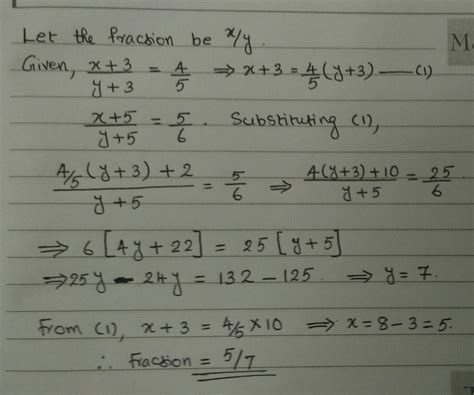 Let the fraction be x/y.
Given, (x+3)/(y+3) = 4/5 ⇒ x+3 = 4/5 (y+3) — (1)
(x+5)/(y+5) = 5/6 . Substituting (1),
(4/5 (y+3) + 2)/(y+5) = 5/6 ⇒ (4(y+3)+10)/(y+5) = 25/6
⇒ 6[4y+22] = 25[y+5]
⇒ 25y - 24y = 132 - 125. ⇒ y = 7.
From (1), x+3 = 4/5 × 10 ⇒ x = 8-3 = 5.
∴ Fraction = 5/7